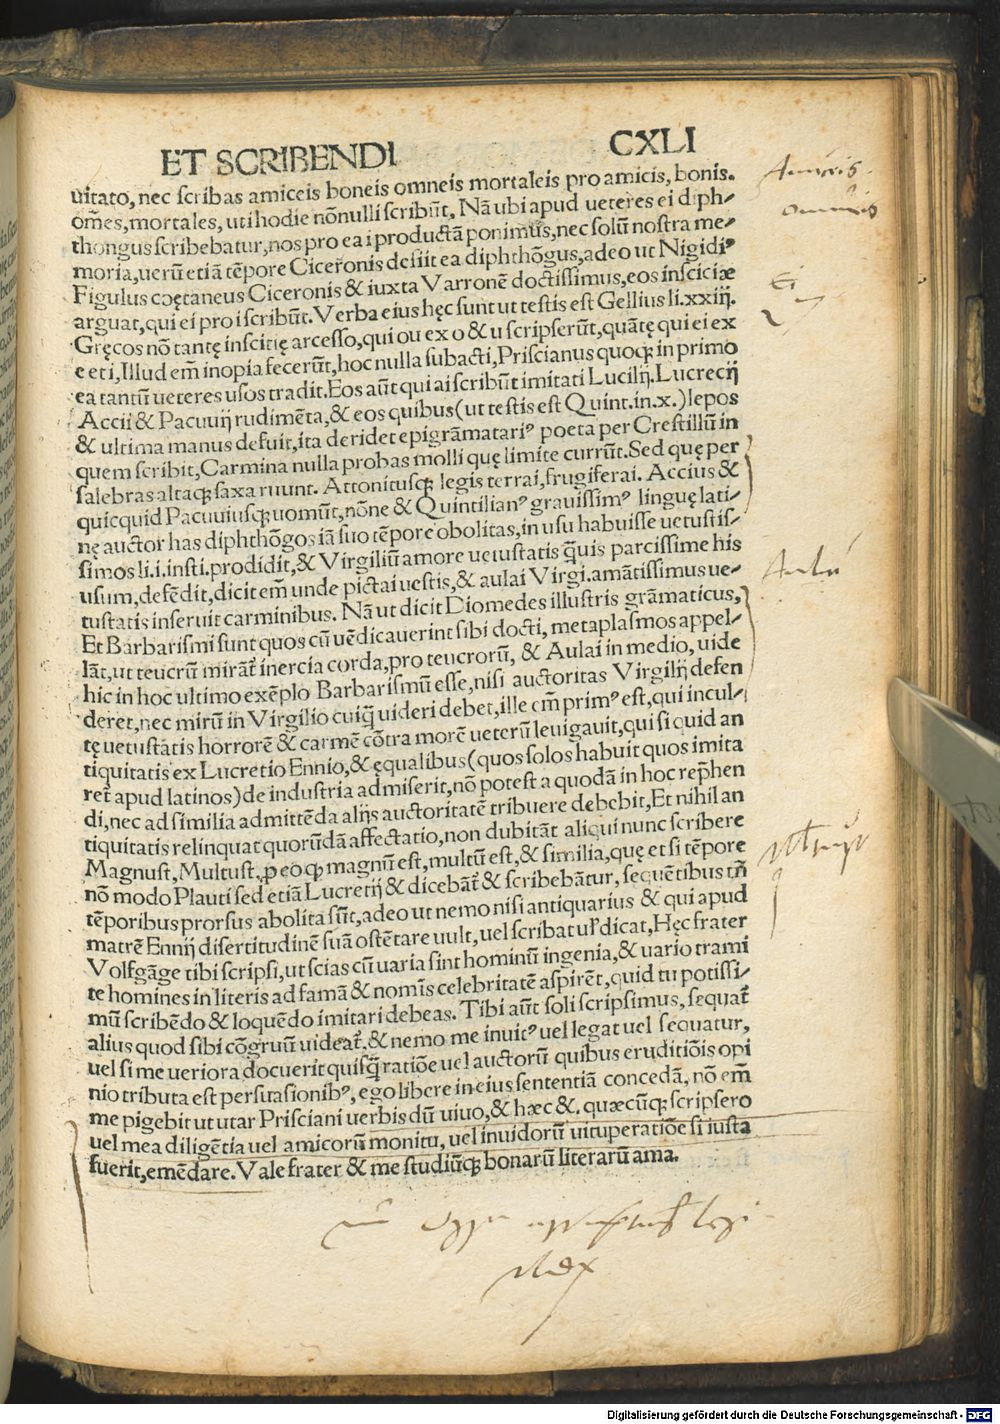 ET SCRIBENDI CXLI
uitato, nec scribas amiceis boneis omneis mortaleis pro amicis, bonis.
om̃es, mortales, uti hodie nõnulli scribũt, Nã ubi apud ueteres ei diph⸗
thongus scribebatur, nos pro ea i productã ponimus, nec solũ nostra me⸗
moria, uerũ etiã tẽpore Ciceronis desiit ea diphthõgus, adeo ut Nigidiꝰ
Figulus coętaneus Ciceronis & iuxta Varronẽ doctissimus, eos insciciæ
arguat, qui ei pro i scribũt. Verba eius hęc sunt ut testis est Gellius li. xxiij.
Gręcos nõ tantę inscitię arcesso, qui ou ex o & u scripserũt, quãtę qui ei ex
e et i, Illud em̃ inopia fecerũt, hoc nulla subacti, Priscianus quoqꝫ in primo
ea tantũ ueteres usos tradit. Eos aũt qui ai scribũt imitati Lucilij. Lucrecij
Accii & Pacuuij rudimẽta, & eos quibus (ut testis est Quint. in. x.) lepos
& ultima manus defuit, ita deridet epigrãmatariꝰ poeta per Crestillũ in
quem scribit, Carmina nulla probas molli quę limite currũt. Sed quę per
salebras altaqꝫ saxa ruunt. Attonitusqꝫ legis terrai, frugiferai. Accius &
quicquid Pacuuiusqꝫ uomũt, nõne & Quintilianꝰ grauissimꝰ linguę lati⸗
nę auctor has diphthõgos iã suo tẽpore obolitas, in usu habuisse uetustis⸗
simos li. i. insti. prodidit, & Virgiliũ amore uetustatis q̃uis parcissime his
usum, defẽdit, dicit em̃ unde pictai uestis, & aulai Virgi. amãtissimus ue⸗
tustatis inseruit carminibus. Nã ut dicit Diomedes illustris grãmaticus,
Et Barbarismi sunt quos cũ uẽdicauerint sibi docti, metaplasmos appel⸗
lãt, ut teucrũ mirãt̃ inercia corda, pro teucrorũ, & Aulai in medio, uide
hic in hoc ultimo exẽplo Barbarismũ esse, nisi auctoritas Virgilij defen
deret, nec mirũ in Virgilio cuiq̃ uideri debet, ille em̃ primꝰ est, qui incul⸗
tę uetustatis horrorẽ & carmẽ cõtra morẽ ueterũ leuigauit, qui si quid an
tiquitatis ex Lucretio Ennio, & ęqualibus (quos solos habuit quos imita
ret̃ apud latinos) de industria admiserit, nõ potest a quodã in hoc rep̃hen
di, nec ad similia admittẽda alijs auctoritatẽ tribuere debebit, Et nihil an
tiquitatis relinquat quorũdã affectatio, non dubitãt aliqui nunc scribere
Magnust, Multust, ꝑ eo qꝫ magnũ est, multũ est, & similia, quę etsi tẽpore
nõ modo Plauti sed etiã Lucretij & dicebãt̃ & scribebãtur, sequẽtibus tñ
tẽporibus prorsus abolita sũt, adeo ut nemo nisi antiquarius & qui apud
matrẽ Ennij disertitudinẽ suã ostẽtare uult, uel scribat uł dicat, Hęc frater
Volfgãge tibi scripsi, ut scias cũ uaria sint hominũ ingenia, & uario trami
te homines in literis ad famã & nomĩs celebritatẽ aspirẽt, quid tu potissi⸗
mũ scribẽdo & loquẽdo imitari debeas. Tibi aũt soli scripsimus, sequat̃
alius quod sibi cõgruũ uideat̃, & nemo me inuitꝰ uel legat uel sequatur,
uel si me ueriora docuerit quisq̃ ratiõe uel auctorũ quibus eruditiõis opi
nio tributa est persuasionibꝰ, ego libere in eius sententiã concedã, nõ em̃
me pigebit ut utar Prisciani uerbis dũ uiuo, & hæc &, quæcũqꝫ scripsero
uel mea diligẽtia uel amicorũ monitu, uel inuidorũ uituperatiõe si iusta
fuerit, emẽdare. Vale frater & me studiũqꝫ bonarũ literarũ ama.
Ei
Digitalisierung gefördert durch die Deutsche Forschungsgemeinschaft - DFG